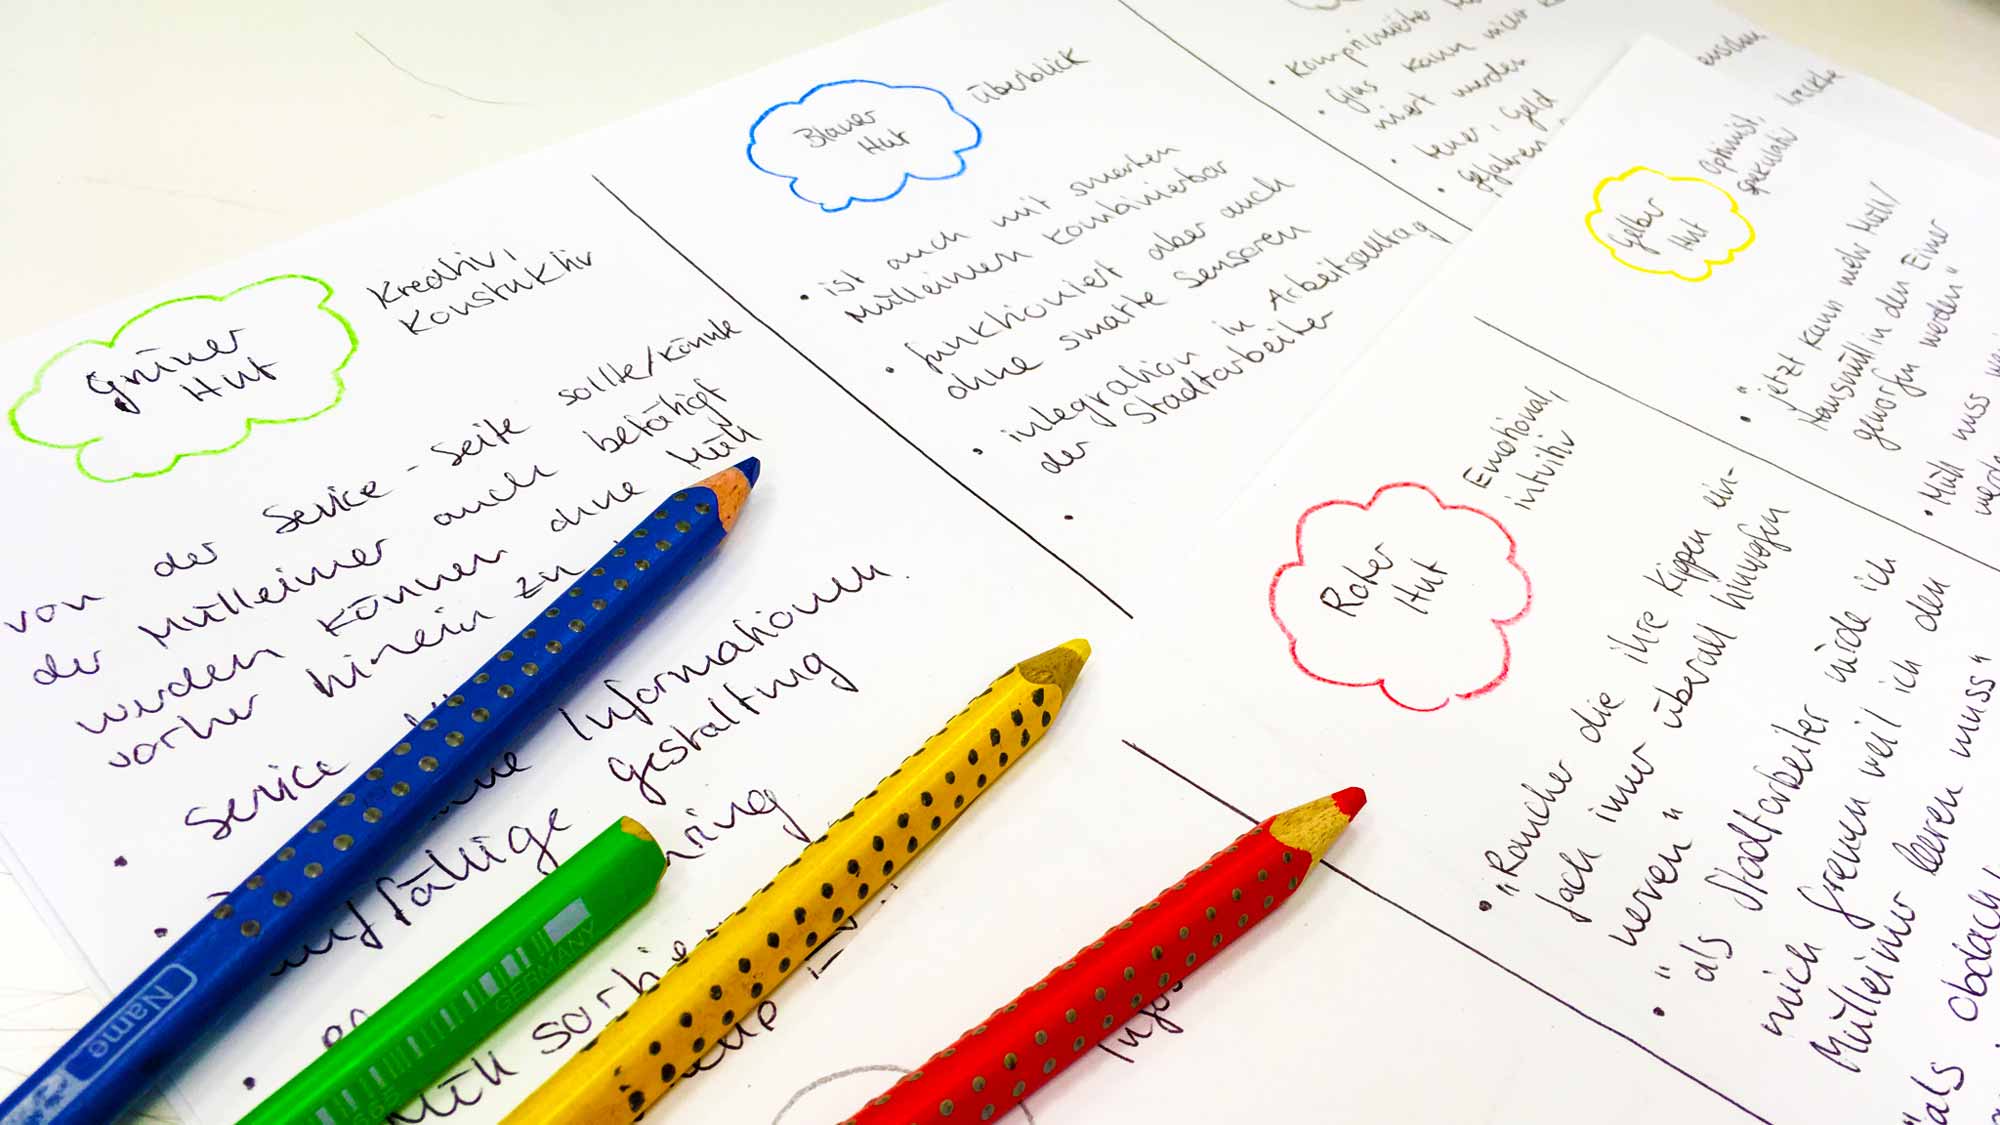 Grüner
Hut
Kreativ,
Konstuktiv
von der Service-Seite sollte/könnte
der Mülleimer auch betätigt
werden können ohne Müll
vorher hinein zu
Service
Informationen
auffällige gestaltung
Müll
Blauer
Hut
Überblick
• ist auch mit smarten
Mülleimern kombinierbar
• funktioniert aber auch
ohne smarte Sensoren
• integration in Arbeitsalltag
der Stadtarbeiter
•
• komprimierter
• Glas kann nicht
miert werden
• teuer, Geld
• Gefahren
Gelber
Hut
Optimist,
Spekulativ
• "jetzt kann mehr Müll/
Hausmüll in den Eimer
geworfen werden"
• Müll muss
Roter
Hut
Emotional,
intuitiv
• "Raucher die ihre Kippen ein-
fach immer überall hinwerfen
nerven"
• "als Stadtarbeiter würde ich
mich freuen weil ich den
Mülleimer leeren muss"
"als obdach
"als
Name
GERMANY